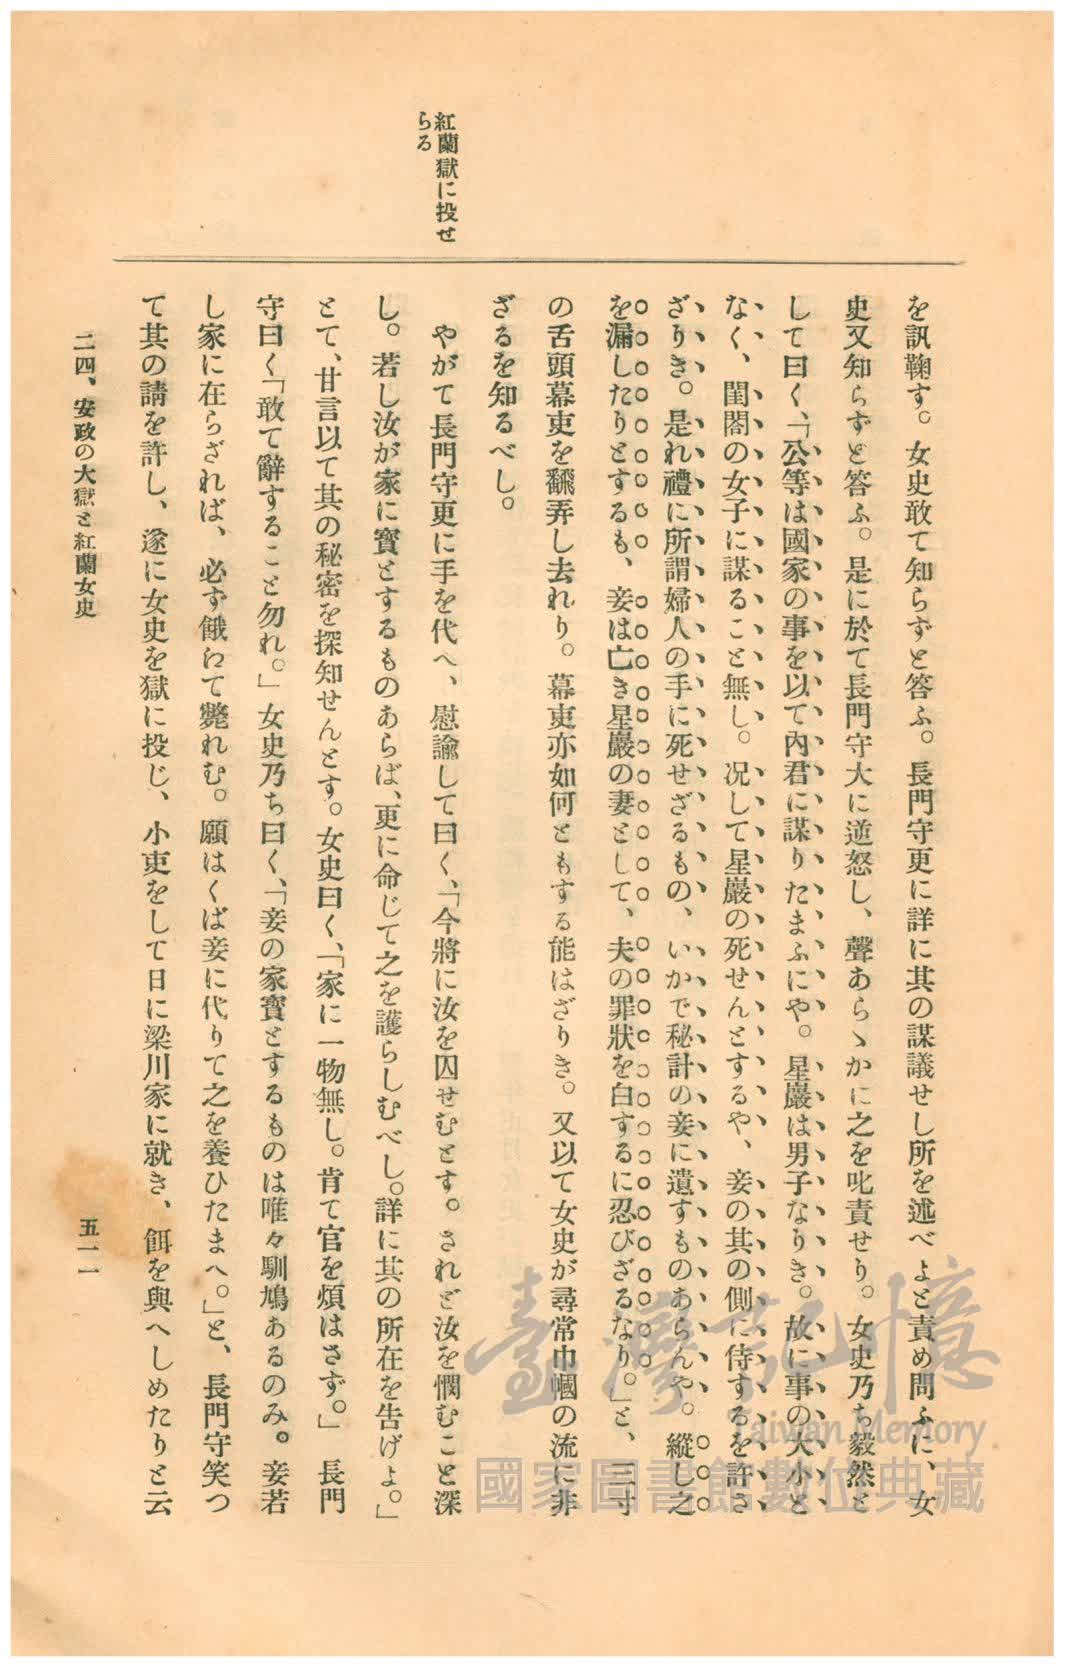 紅蘭獄に投せ
らる
を訊鞠す。女史敢て知らずと答ふ。長門守更に詳に其の謀議せし所を述べよと責め問ふに、女
史又知らずと答ふ。是に於て長門守大に逆怒し、聲あらゝかに之を叱責せり。女史乃ち毅然と
して曰く、「公等は國家の事を以て內君に謀りたまふにや。星巖は男子なりき。故に事の大小と
なく、閨閤の女子に謀ること無し。况して星巖の死せんとするや、妾の其の側に侍するを許さ
ざりき。是れ禮に所謂婦人の手に死せざるもの、いかで秘計の妾に遺すものあらんや。縱し之
を漏したりとするも、妾は亡き星巖の妻として、夫の罪狀を白するに忍びざるなり。」と、三寸
の舌頭幕吏を飜弄し去れり。幕吏亦如何ともする能はざりき。又以て女史が尋常巾幗の流に非
ざるを知るべし。
やがて長門守更に手を代へ、慰諭して曰く、「今將に汝を囚せむとす。されど汝を憫むこと深
し。若し汝が家に寳とするものあらば、更に命じて之を護らしむべし。詳に其の所在を告げよ。」
とて、甘言以て其の秘密を探知せんとす。女史曰く、「家に一物無し。肯て官を煩はさず。」長門
守曰く「敢て辭すること勿れ。」女史乃ち曰く、「妾の家寳とするものは唯々馴鳩あるのみ。妾若
し家に在らざれば、必ず餓ゑて斃れむ。願はくば妾に代りて之を養ひたまへ。」と、長門守笑つ
て其の請を許し、遂に女史を獄に投じ、小吏をして日に梁川家に就き、餌を與へしめたりと云
二四、安政の大獄と紅蘭女史
五一一
臺灣記憶
Taiwan Memory
國家圖書館數位典藏